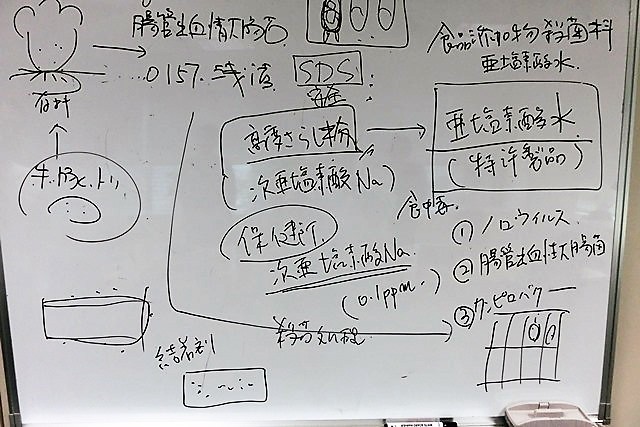 腸管出血性大腸菌
O157. 浅漬
SDS
安全
食品添加物殺菌料
亜塩素酸水.
高度さらし粉
次亜塩素酸Na)
亜塩素酸水
(特許製品)
有料
牛.豚.トリ
食中毒.
保健所
次亜塩素酸Na.
(0.1ppm.)
① ノロウイルス
② 腸管出血性大腸菌
③ カンピロバクター
殺菌処理
結着剤